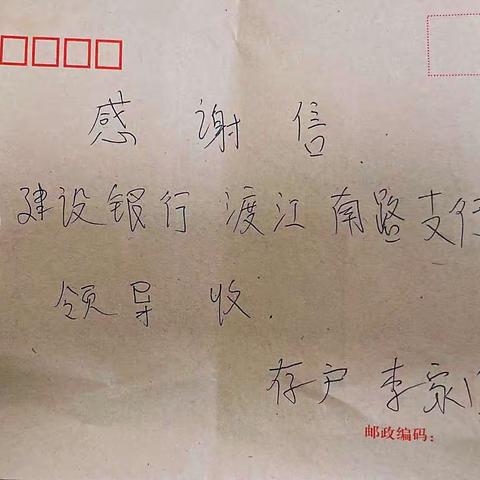 感谢信
建设银行 渡江南路支行
领导 收.
存户 李家
邮政编码：